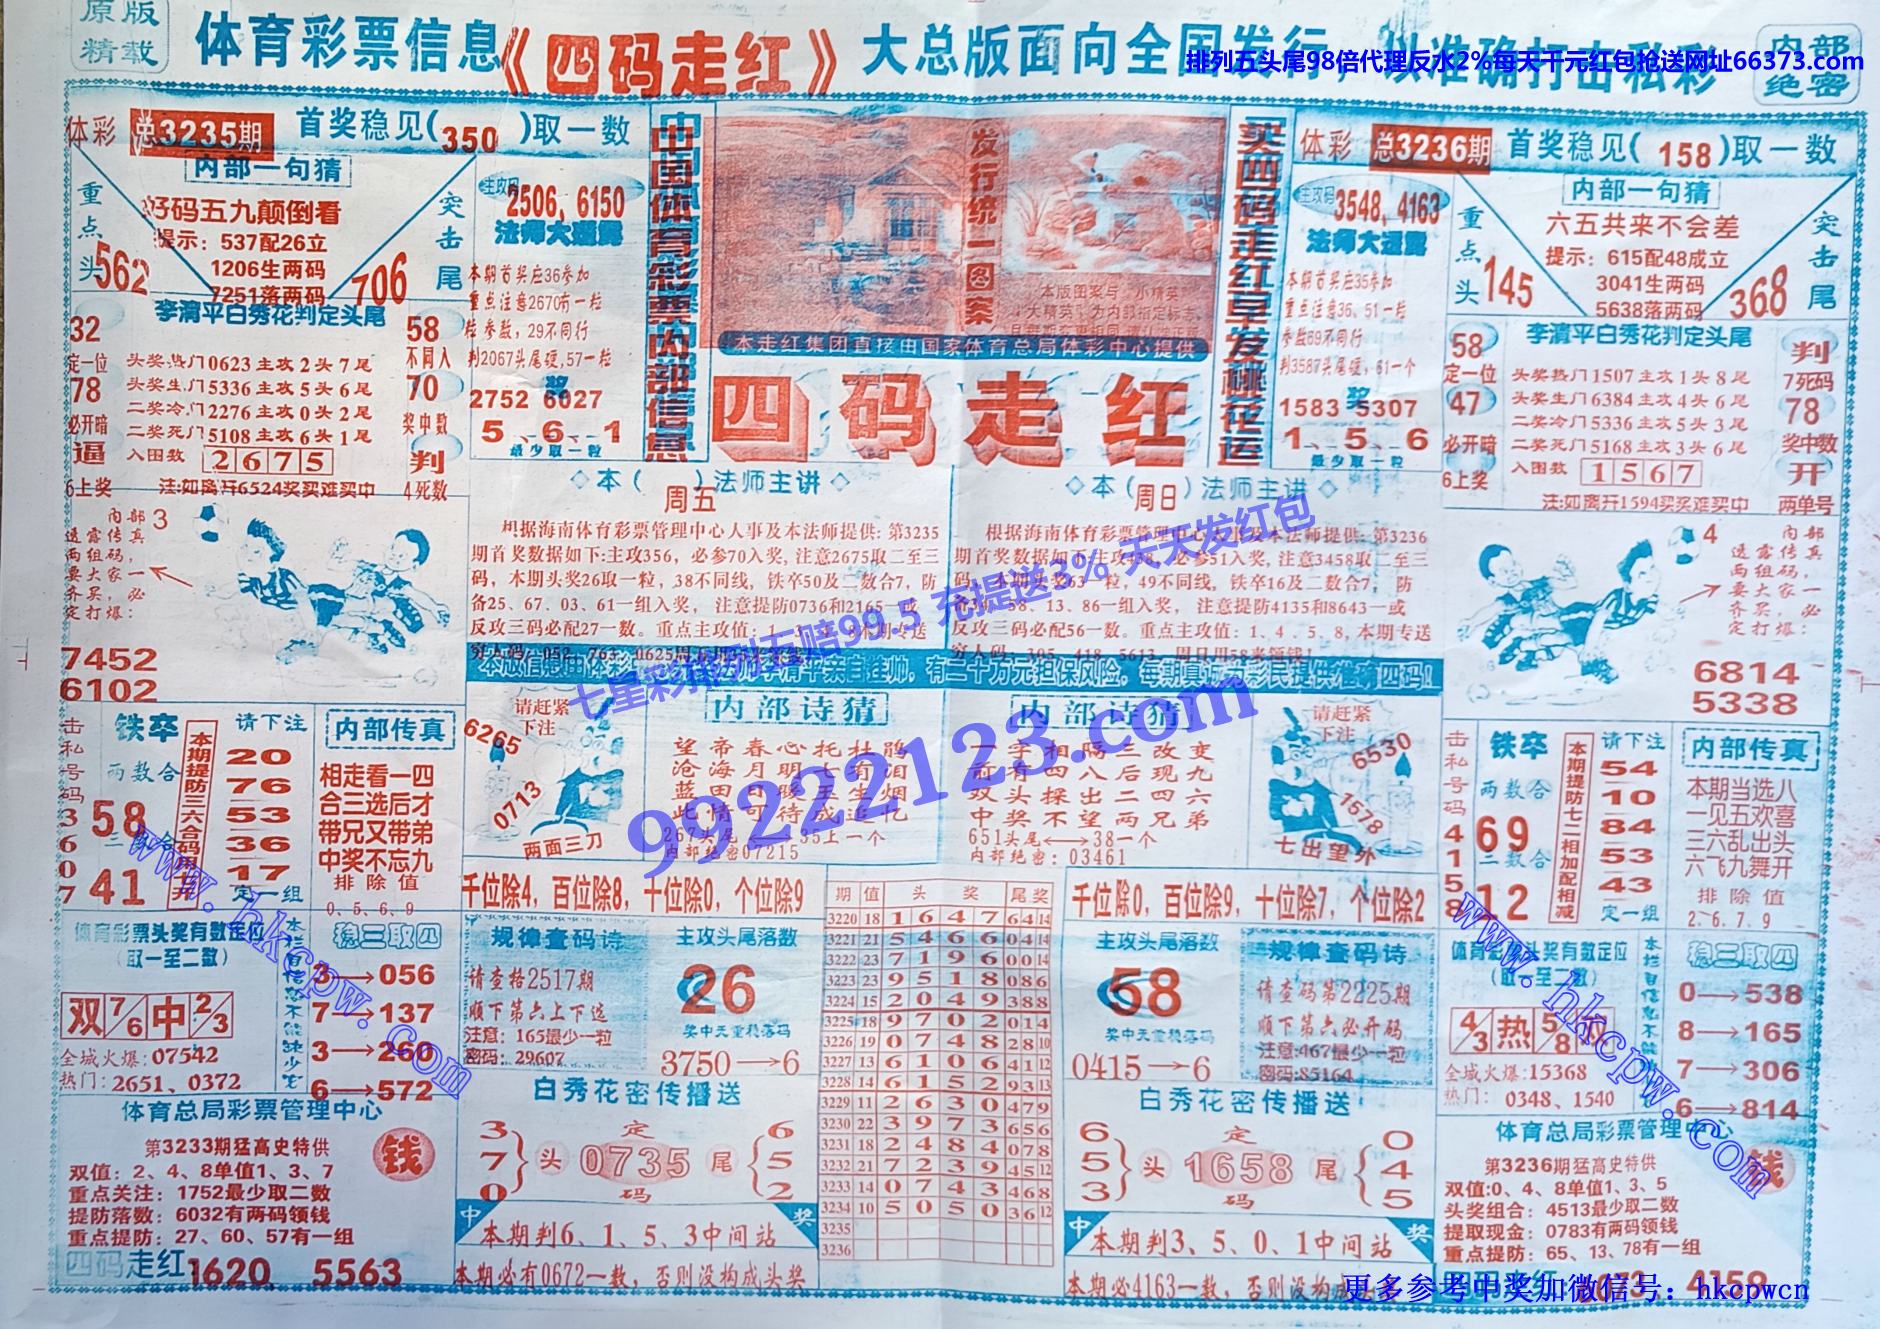 原版
精载
体育彩票信息《四码走红》大总版面向全国发行
内部
绝密
排列五头尾98倍代理反水2%每天千元红包抢送网址66373.com
体彩 总3235期 首奖稳见(350)取一数
内部一句猜
好码五九颠倒看
提示：537配26立
1206生两码
7251落两码
重点头
562
突击尾
706
主攻码
2506，6150
法师大透露
本期首奖应36参加
重点注意2670有一粒
参数，29不同行
判2067头尾硬，57一粒
奖
2752 6027
5、6、1
最少取一粒
李清平白秀花判定头尾
32
定一位
78
必开暗
逼
6上奖
头奖.热门0623主攻2头7尾
头奖生门5336主攻5头6尾
二奖冷门2276主攻0头2尾
二奖死门5108主攻6头1尾
入围数 2675
注:如离开6524奖买难买中
58
不同入
70
奖中数
判
4死数
中国体育彩票内部信息
发行统一图案
本版图案与“小精英”
大精英”为内部指定标志。
本走红集团直接由国家体育总局体彩中心提供
四码走红
买四码走红早发桃花运
体彩 总3236期 首奖稳见(158)取一数
主攻码
3548，4163
法师大透露
本期首奖应35参加
重点注意36、51一粒
参数69不同行
判3587头尾硬，61一个
奖
1583 5307
1、5、6
最少取一粒
内部一句猜
六五共来不会差
提示：615配48成立
3041生两码
5638落两码
重点头
145
突击尾
368
李清平白秀花判定头尾
58
定一位
47
必开暗
6上奖
头奖热门1507主攻1头8尾
头奖生门6384主攻4头6尾
二奖冷门5336主攻5头3尾
二奖死门5168主攻3头6尾
入围数 1567
注:如离开1594买奖难买中
判
7死码
78
奖中数
开
两单号
内部
透露传真
两组码，
要大家一
齐买，必
定打爆：
3
7452
6102
◇本(周五)法师主讲◇
根据海南体育彩票管理中心人事及本法师提供: 第3235
期首奖数据如下:主攻356，必参70入奖，注意2675取二至三
码，本期头奖26取一粒，38不同线，铁卒50及二数合7，防
备25、67、03、61一组入奖， 注意提防0736和2165一或
反攻三码必配27一数。重点主攻值：
◇本(周日)法师主讲◇
根据海南体育彩票管理中心人事及本法师提供: 第3236
期首奖数据如下:主攻438，必参51入奖，注意3458取二至三
码，本期头奖63一粒，49不同线，铁卒16及二数合7， 防
58、13、86一组入奖， 注意提防4135和8643一或
反攻三码必配56一数。重点主攻值：1、4、5、8, 本期专送
穷人码：305、418、5613，周日用58来领钱！
七星彩排列五赔99.5 充提送3% 天天发红包
内部
透露传真
两组码，
要大家一
齐买，必
定打爆：
4
6814
5338
李清平亲自挂帅，有二十万元担保风险，每期真诚为彩民提供准确四码！
击私号码3607
铁卒
两数合
58
41
本期提防三六合码
请下注
20
76
53
36
17
定一组
内部传真
相走看一四
合三选后才
带兄又带弟
中奖不忘九
排除值
0、5、6、9
6265
请赶紧
下注
0713
两面三刀
内部诗猜
望帝春心托杜鹃
沧海月明七有泪
蓝田日暖玉生烟
此情可待成追忆
267头尾⟷35上一个
内部绝密07215
99222123.com
内部诗猜
一字相隔三改变
前有四八后现九
双头探出二四六
中奖不望两兄弟
651头尾⟷38一个
内部绝密：03461
请赶紧
下注
6530
1678
七出望外
击私号码4158
铁卒
两数合
69
二数合
12
本期提防七二相加配相减
请下注
54
10
84
53
43
定一组
内部传真
本期当选八
一见五欢喜
三六乱出头
六飞九舞开
排除值
2、6、7、9
千位除4，百位除8，十位除0，个位除9
千位除0，百位除9，十位除7，个位除2
体育彩票头奖有数定位
(取一至二数)
双 7/6 中 2/3
全城火爆：07542
热门：2651、0372
本栏自信您不能缺少它
稳三取四
3→056
7→137
3→260
6→572
规律查码诗
请查格2517期
顺下第六上下选
注意：165最少一粒
密码：29607
主攻头尾落数
26
奖中天重稳落码
3750→6
期 值 头奖 尾奖
3220 18 1 6 4 7 6 4 14
3221 21 5 4 6 6 0 4 14
3222 23 7 1 9 6 0 0 14
3223 23 9 5 1 8 0 8 6
3224 15 2 0 4 9 3 8 8
3225 18 9 7 0 2 0 1 4
3226 19 0 7 4 8 2 8 10
3227 13 6 1 0 6 4 1 12
3228 14 6 1 5 2 9 3 13
3229 11 2 6 3 0 4 7 9
3230 22 3 9 7 3 6 5 6
3231 18 2 4 8 4 0 7 8
3232 21 7 2 3 9 4 5 12
3233 14 0 7 4 3 4 6 8
3234 10 5 0 5 0 3 6 12
3235
3236
主攻头尾落数
58
奖中天重稳落码
0415→6
规律查码诗
请查码第2225期
顺下第六必开码
注意:467最少一粒
密码:85164
体育彩票头奖有数定位
(取一至二数)
4/3 热
全城火爆:15368
热门： 0348、1540
稳三取四
0→538
8→165
7→306
6→814
www.hkcpw.com
www.hkcpw.com
体育总局彩票管理中心
第3233期猛高史特供
钱
双值：2、4、8单值1、3、7
重点关注：1752最少取二数
提防落数：6032有两码领钱
重点提防：27、60、57有一组
四码走红1620 5563
白秀花密传播送
3
7
0
头 定 0735 码 尾
6
5
2
中 奖
本期判6、1、5、3中间站
本期必有0672一数，否则没构成头奖
白秀花密传播送
6
5
3
头 定 1658 码 尾
0
4
5
中 奖
本期判3、5、0、1中间站
本期必4163一数，否则没构成
体育总局彩票管理中心
第3236期猛高史特供
钱
双值:0、4、8单值1、3、5
头奖组合：4513最少取二数
提取现金：0783有两码领钱
重点提防：65、13、78有一组
4158
更多参考中奖加微信号：hkcpwcn